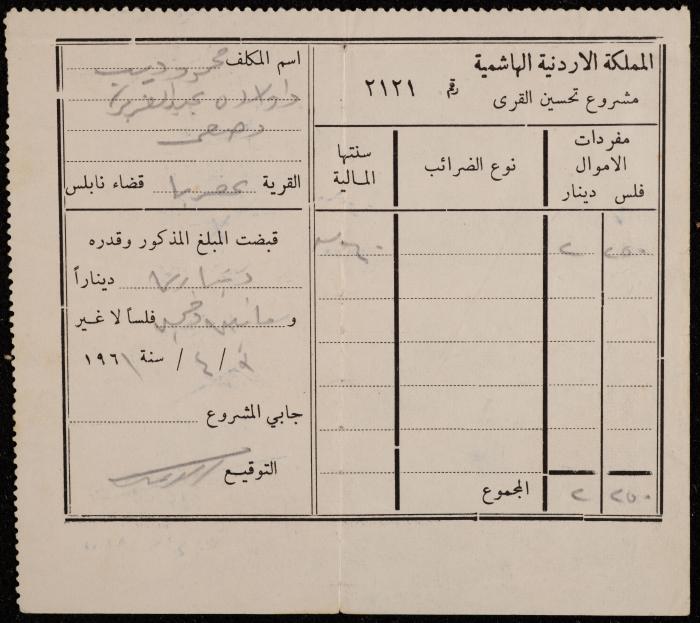 المملكة الاردنية الهاشمية
مشروع تحسين القرى رقم ٢١٢١
مفردات الاموال
فلس دينار
نوع الضرائب
سنتها المالية
٢٥٠ ٢
المجموع
٢٥٠ ٢
اسم المكلف محمود ديب
واولاده عبد العزيز
القرية عقربا قضاء نابلس
قبضت المبلغ المذكور وقدره
ديناران ديناراً
و مائتان وخمسون فلساً لا غير
/ ٤ / سنة ١٩٦١
جابي المشروع
التوقيع